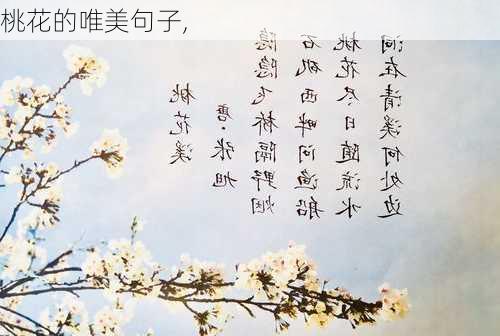 桃花的唯美句子,
桃花溪
唐·张旭
隐隐飞桥隔野烟
石矶西畔问渔船
桃花尽日随流水
洞在清溪何处边